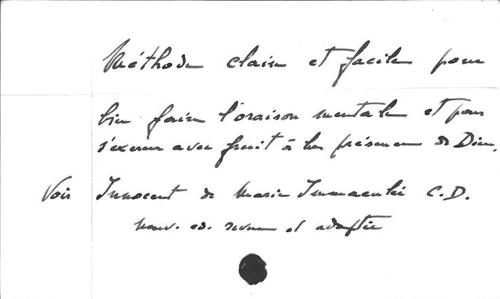 Méthode claire et facile pour
bien faire l'oraison mentale et pour
s'exercer avec fruit à la présence de Dieu.
Voir Innocent de Marie Immaculée C.D.
nouv. ed. revue et adaptée